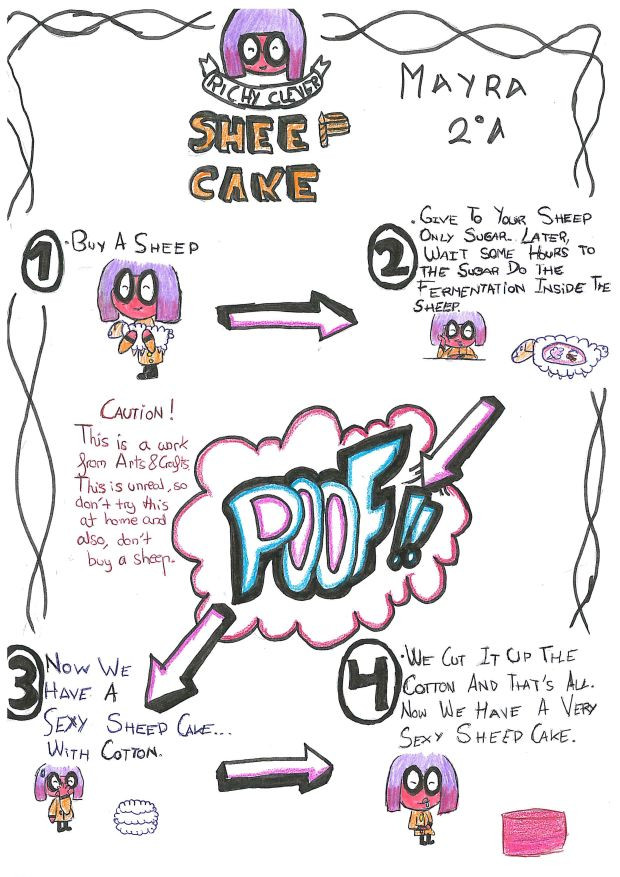 RICHY CLEVER
SHEEP
CAKE
MAYRA
2ºA
1
• BUY A SHEEP
2
• GIVE TO YOUR SHEEP
ONLY SUGAR. LATER,
WAIT SOME HOURS TO
THE SUGAR DO THE
FERMENTATION INSIDE THE
SHEEP.
CAUTION!
This is a work
from Arts & Crafts.
This is unreal, so
don't try this
at home and
also, don't
buy a sheep.
POOF!!
3
NOW WE
HAVE A
SEXY SHEEP CAKE...
WITH COTTON.
4
• WE CUT IT UP THE
COTTON AND THAT'S ALL.
NOW WE HAVE A VERY
SEXY SHEEP CAKE.